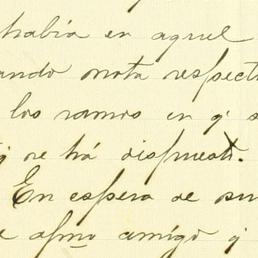 había en aquel
ando nota respect
los ramos en q' s
q' se há dispuesto.
En espera de su
afmo amigo q